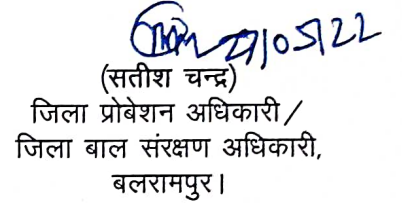 27/05/22
(सतीश चन्द्र)
जिला प्रोबेशन अधिकारी /
जिला बाल संरक्षण अधिकारी,
बलरामपुर।